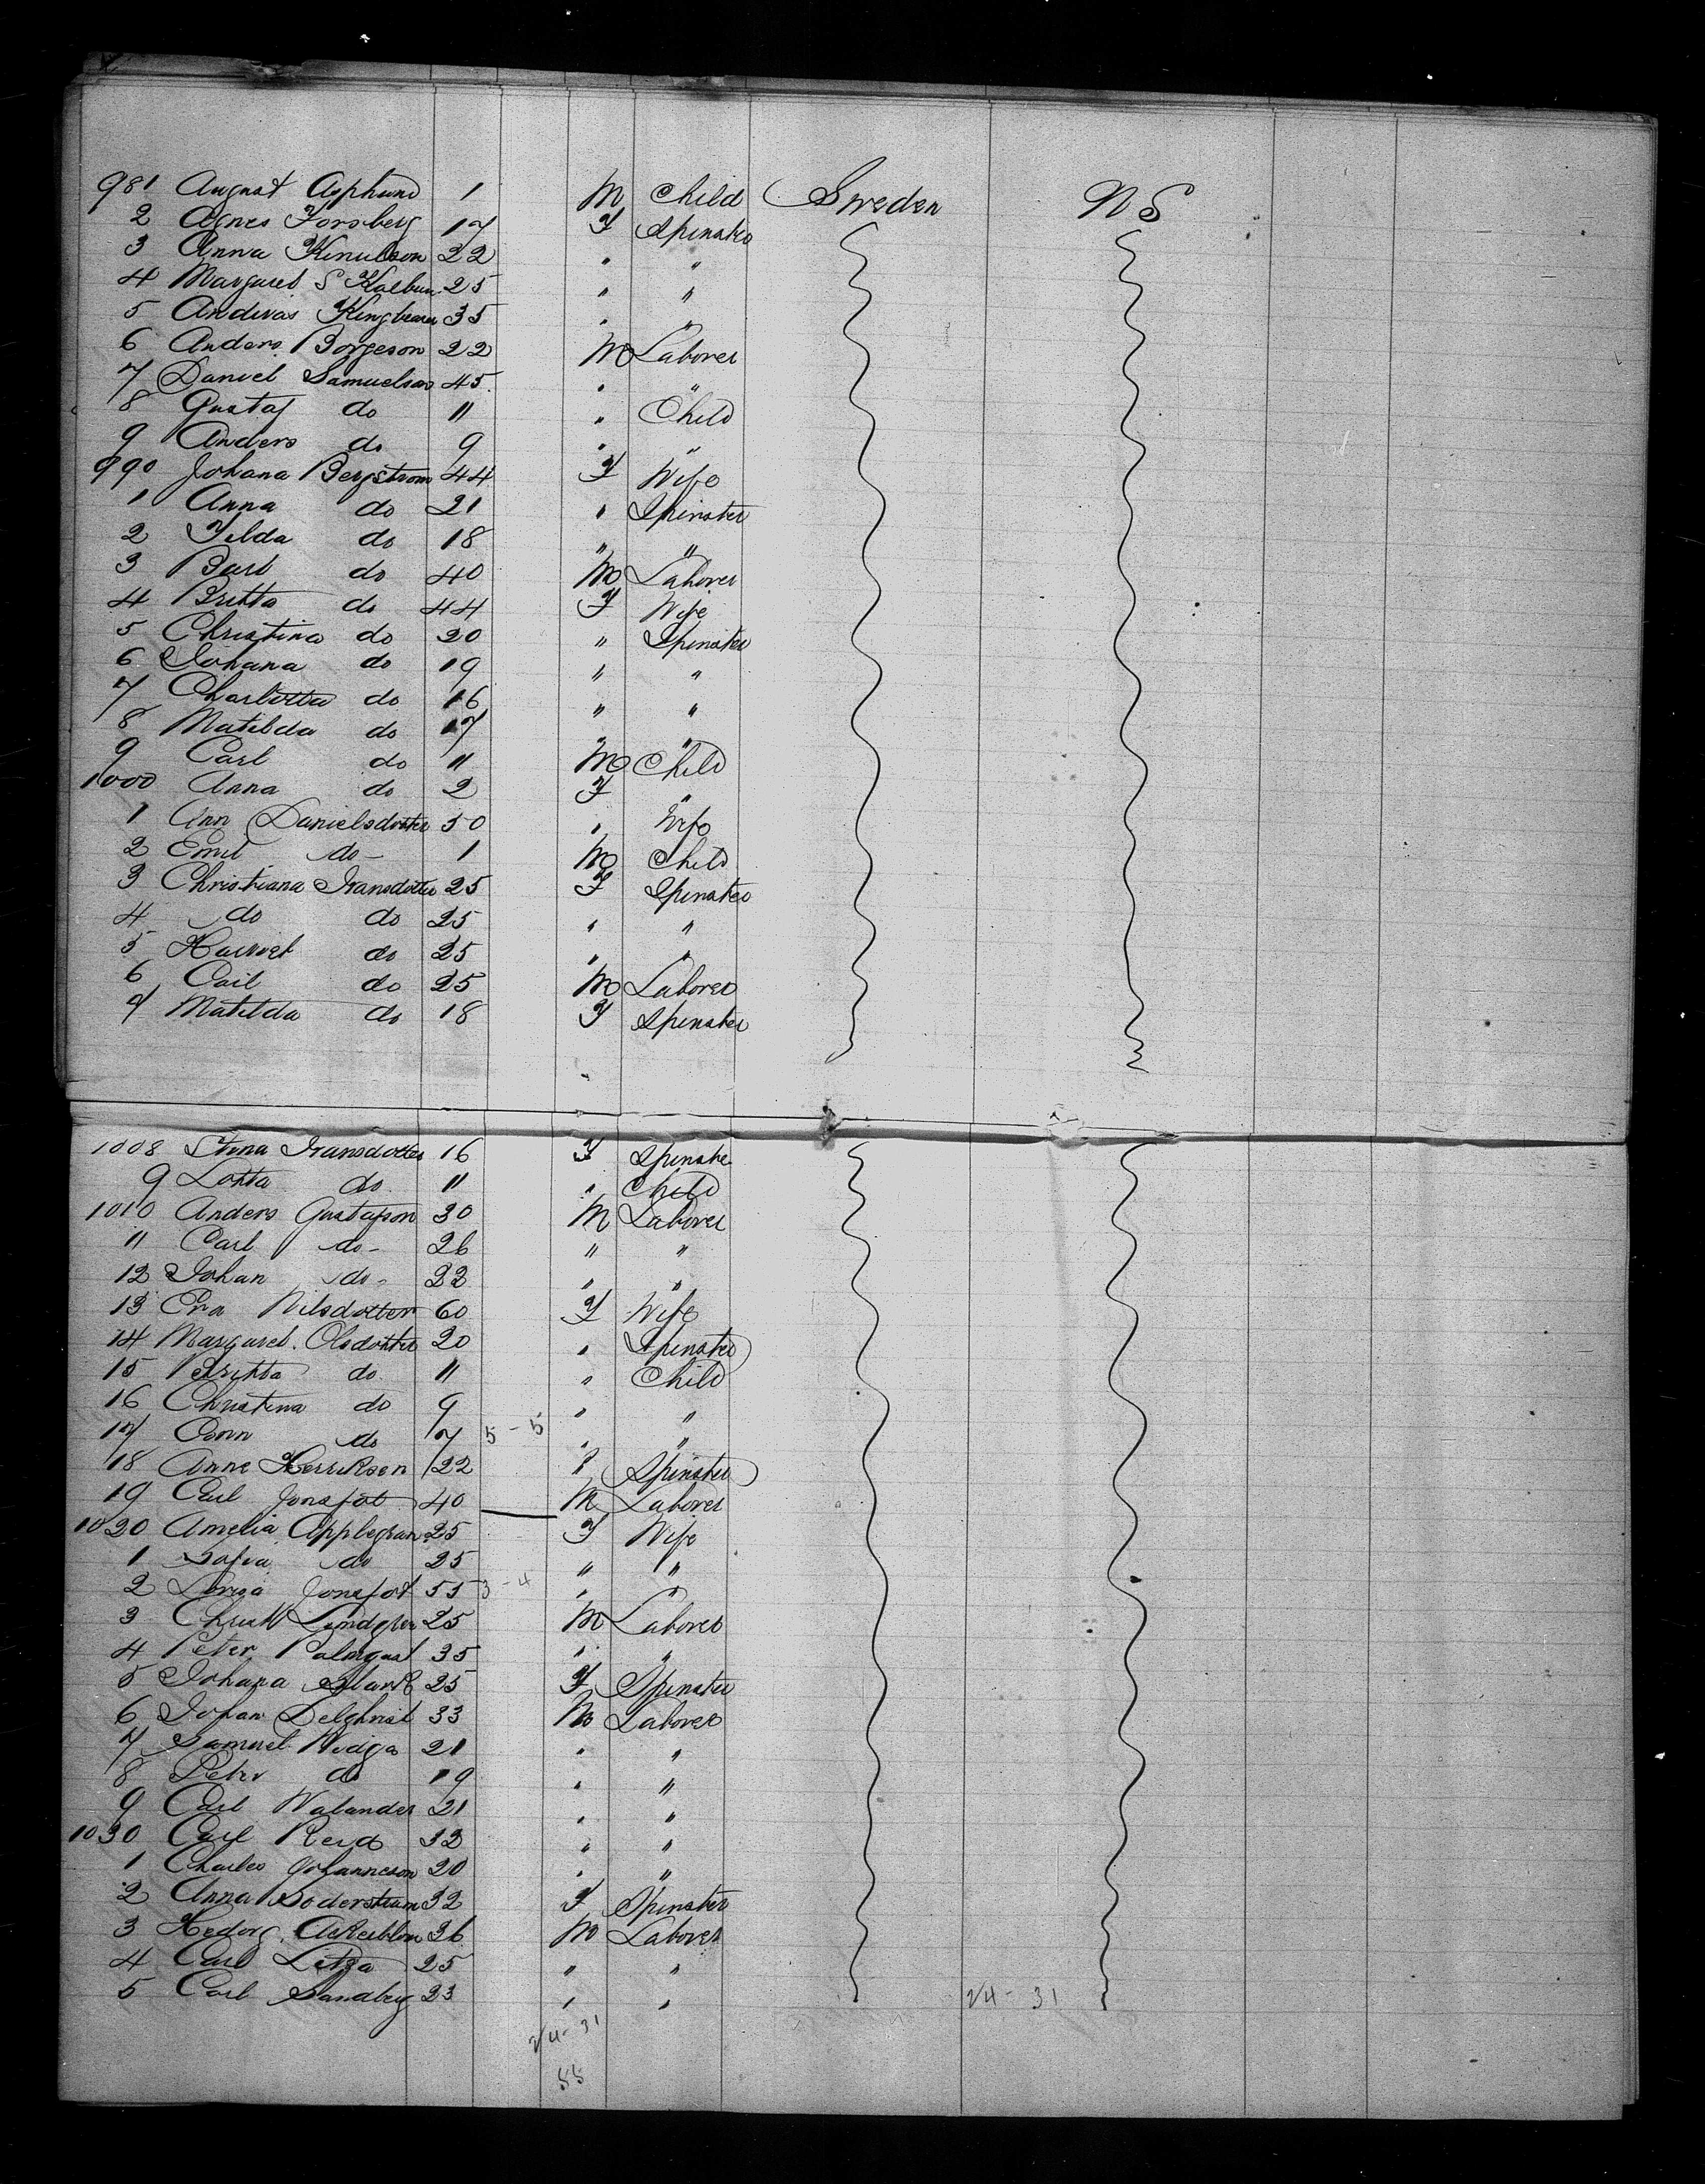 981 August Asphund 1 M Child Sweden U S
2 Agnes Forsberg 17 F Spinster
3 Anna Knutson 22 " "
4 Margaret S 25 " "
5 Andreas 35 " "
6 Anders Borgeson 22 M Laborer
7 Daniel Samuelson 45 " "
8 Gustaf do 11 " Child
9 Anders do 9 " "
990 Johana Bergstrom 44 F Wife
1 Anna do 21 " Spinster
2 Tilda do 18 " "
3 do 40 M Laborer
4 Britta do 44 F Wife
5 Christina do 20 " Spinster
6 Johana do 19 " "
7 Charlotta do 16 " "
8 Matilda do 17 " "
9 Carl do 11 M Child
1000 Anna do 2 F "
1 Ann Danielsdotter 30 " Wife
2 Emil do - 1 M Child
3 Christiana 25 F Spinster
4 do do 25 " "
5 Harriet do 25 " "
6 Carl do 25 M Laborer
7 Matilda do 18 F Spinster
1008 Stina 16 F Spinste
9 Lotta do 11 " Child
1010 Anders Gustafson 30 M Laborer
11 Carl do - 26 " "
12 Johan do - 22 " "
13 Nilsdotter 60 F Wife
14 Margaret Olsdotter 20 " Spinster
15 Britta do 11 " Child
16 Christina do 9 " "
17 do 7 5 - 5 " "
18 Anne Henrikson 22 " Spinster
19 Carl 40 M Laborer
1020 Amelia Applegran 25 F Wife
1 Sofia do 25 " "
2 55 3 - 4 " "
3 Lundgren 25 M Laborer
4 Peter 35 " "
5 Johana 25 F Spinster
6 Johan 33 M Laborer
7 Samuel 21 " "
8 Peter do 19 " "
9 Carl Walander 21 " "
1030 Carl 32 " "
1 Charles Johanneson 20 " "
2 Anna Soderstrum 32 F Spinster
3 26 M Laborer
4 Carl 25 " "
5 Carl Sandberg 23 " " 24 - 31
24 - 31
55